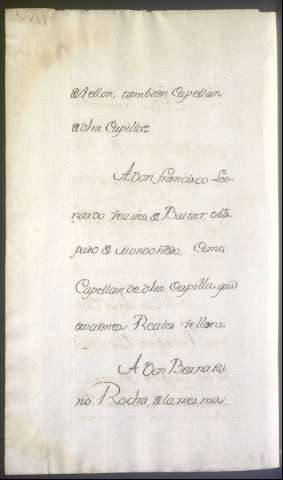 de Vellon, tambien Capellan
de dha Capilla.
A Don Francisco Leo-
nardo de Balter, obis-
pado de Mondoñedo, Como
Capellan de dha Capilla,
doscientos Reales Vellon.
A Don Bernardi-
no Rocha, de la mesma